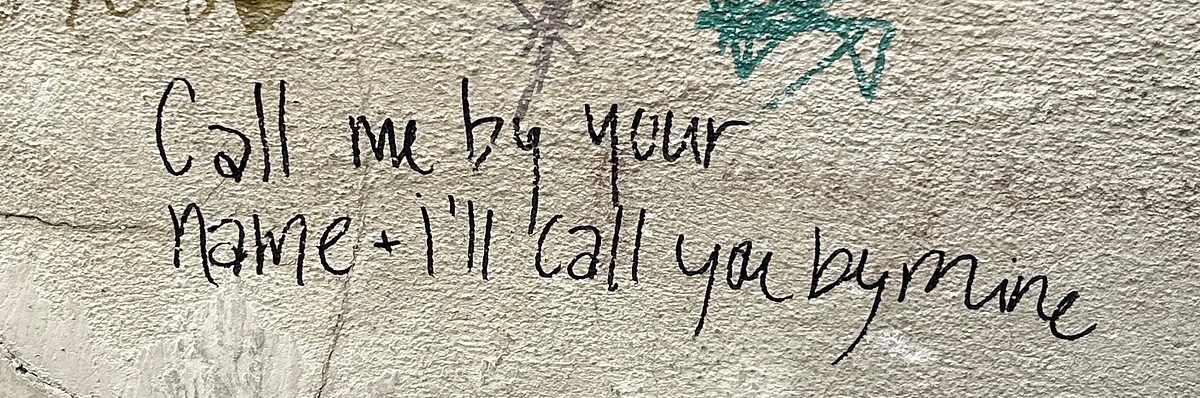 Call me by your
name + i'll call you by mine